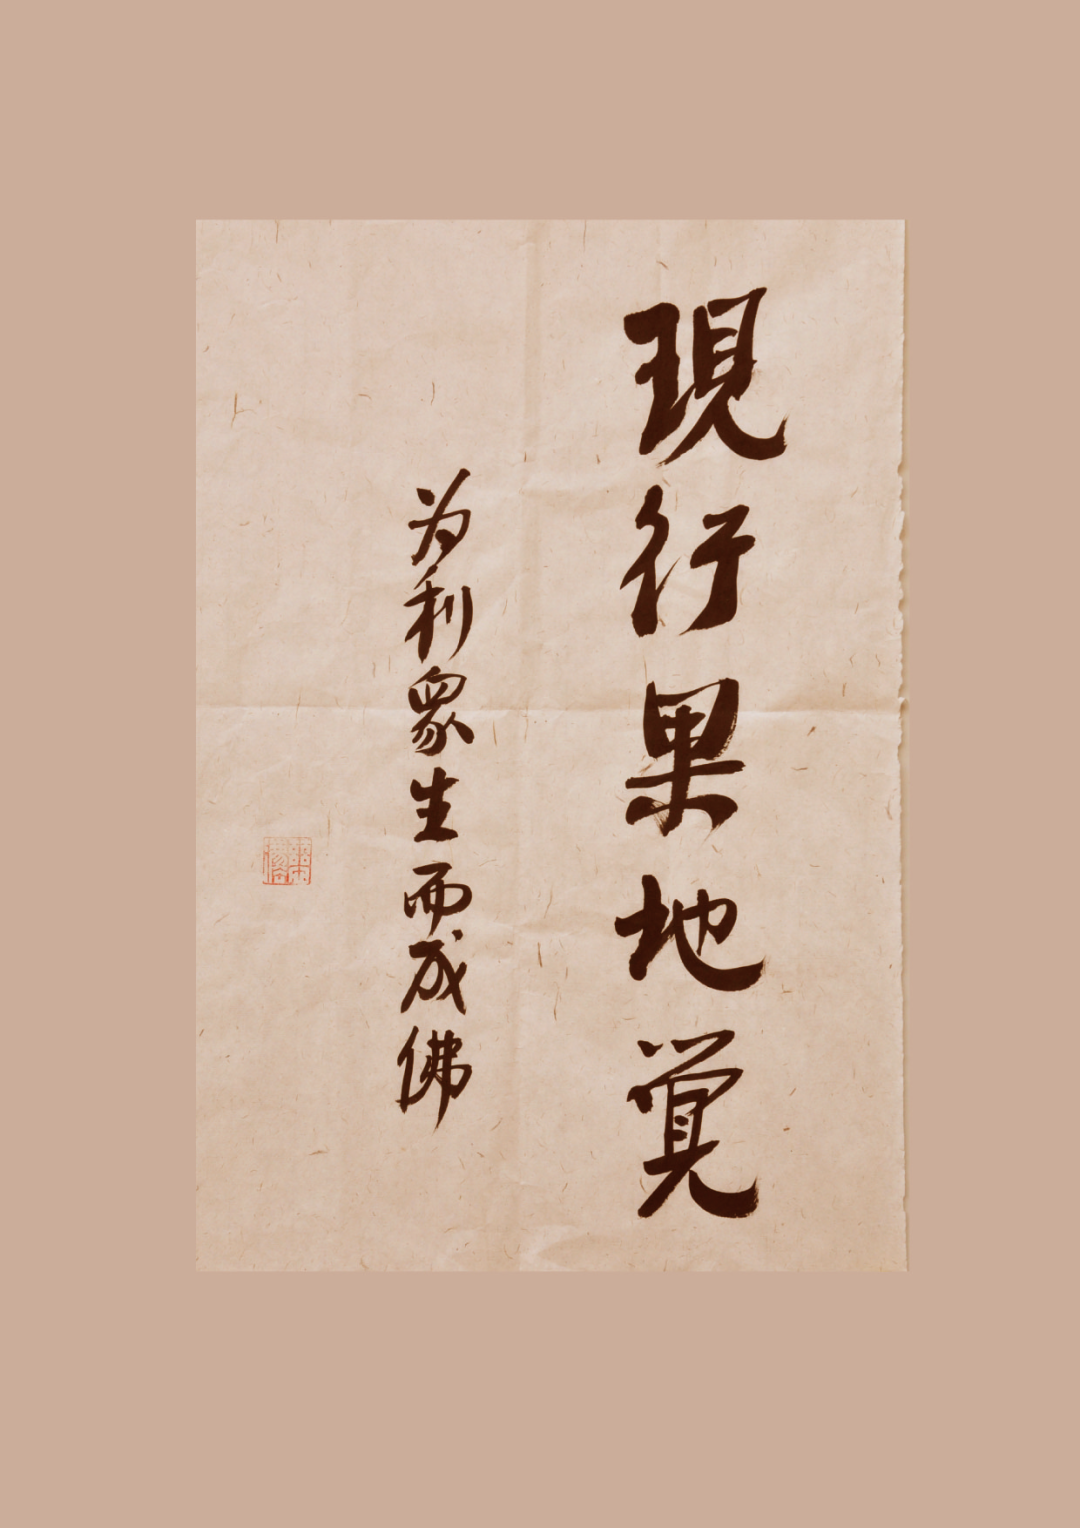 現行果地覚
为利衆生而成佛